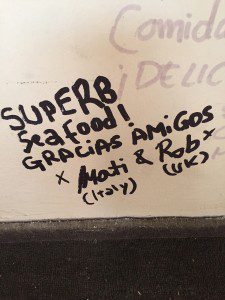 Comida
¡DELIC
SUPERB
Seafood!
GRACIAS AMIGOS
x Mati & Rob x
(Italy) (UK)